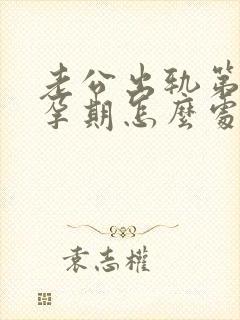 老公出軌第
孕期怎麼處
袁志權